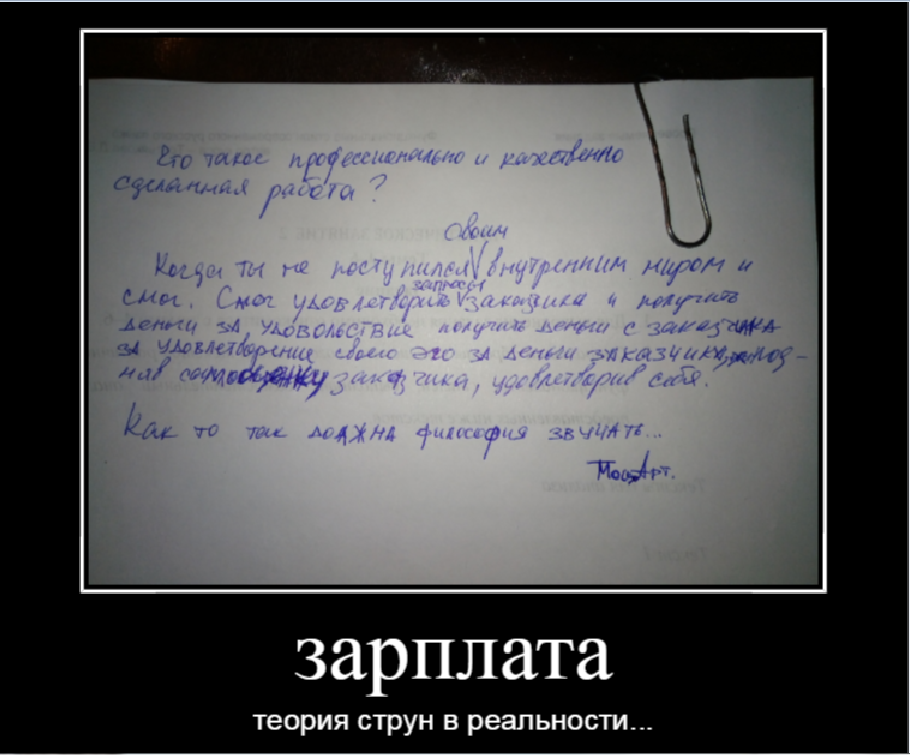 Что такое профессионально и качественно
сделанная работа?
своим
Когда ты не поступился внутренним миром и
запросы
смог. Смог удовлетворить заказчика и получить
деньги за, удовольствие получить деньги с заказчика
за удовлетворение своего эго за деньги заказчика, под-
няв самооценку заказчика, удовлетворив себя.
Как то так должна философия звучать...
зарплата
теория струн в реальности...